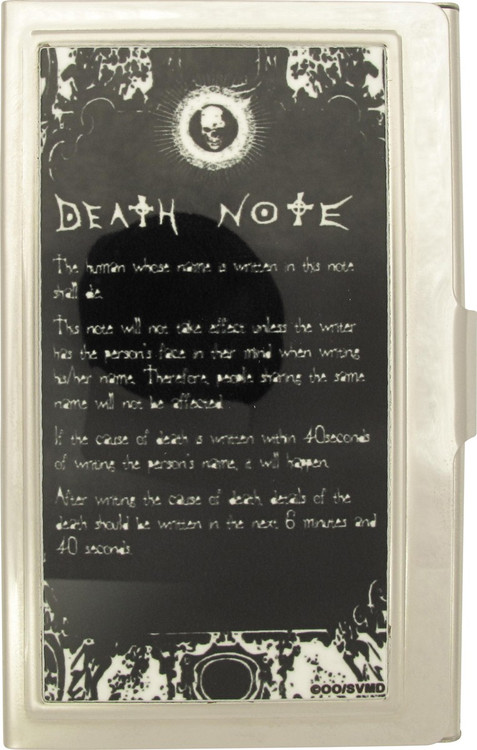 DEATH NOTE
The human whose name is written in this note
shall die.
This note will not take effect unless the writer
has the person's face in their mind when writing
his/her name. Therefore, people sharing the same
name will not be affected.
If the cause of death is written within 40seconds
of writing the person's name, it will happen.
After writing the cause of death, details of the
death should be written in the next 6 minutes and
40 seconds.
©OO/SVMD